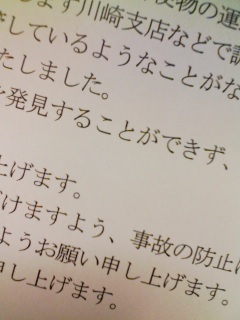 物の運
ます川崎支店などで
しているようなことがな
たしました。
発見することができず、
上げます。
けますよう、事故の防止
ようお願い申し上げます。
申し上げます。